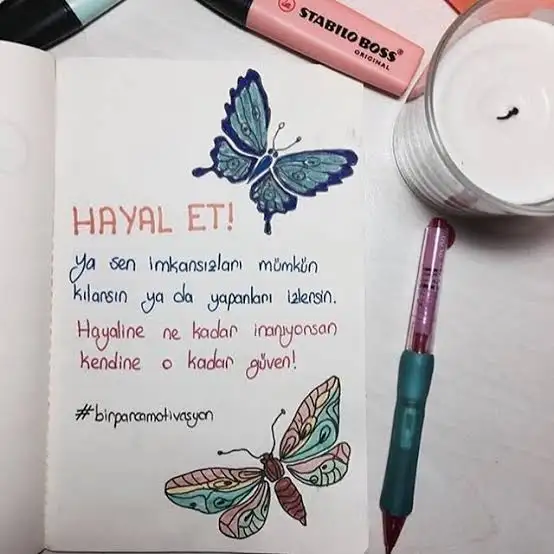 STABILO BOSS
ORIGINAL
HAYAL ET!
Ya sen imkansızları mümkün
kılarsın ya da yapanları izlersin.
Hayaline ne kadar inanıyorsan
kendine o kadar güven!
#birparcamotivasyon